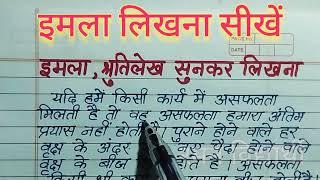 इमला लिखना सीखें
PAGE NO.
DATE
इमला, श्रुतिलेख सुनकर लिखना
यदि हमें किसी कार्य में असफलता
मिलती है तो वह असफलता हमारा अंतिम
प्रयास नहीं होती है। पुराने होने वाले हर
वृक्ष के अंदर नए पैदा होने वाले
वृक्ष के बीज होते हैं। असफलता